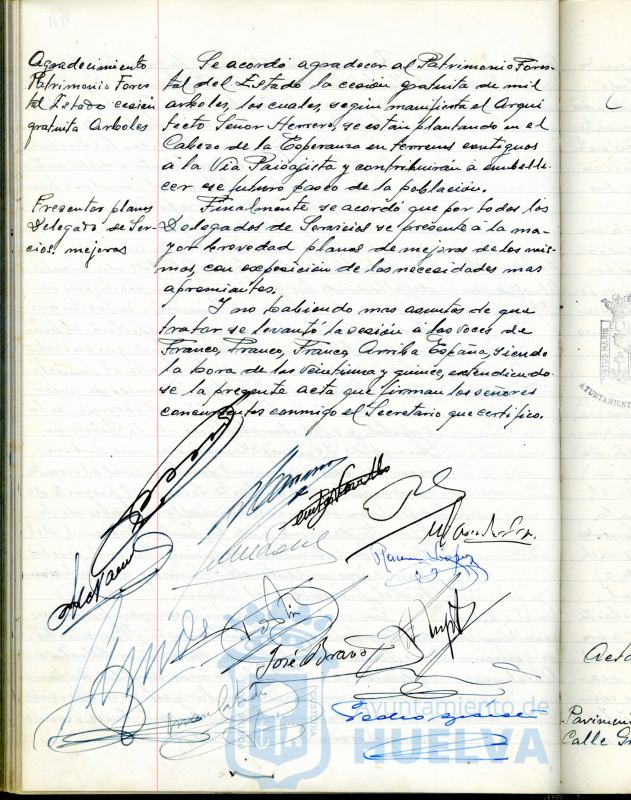 Agradecimiento
Patrimonio Fores
tal Estado cesión
gratuita Arboles
Se acordó agradecer al Patrimonio Fores-
tal del Estado la cesión gratuita de mil
arboles, los cuales, según manifiesta el Arqui
tecto Señor Herrero, se están plantando en el
Cabezo de la Esperanza en terrenos contiguos
á la Via Paisajista y contribuirán á embelle-
cer ese futuro paseo de la población.
Presentar planes
Delegado de Ser-
cios mejoras
Finalmente se acordó que por todos los
Delegados de Servicios se presente á la ma-
yor brevedad planes de mejoras de los mis-
mos, con exposición de las necesidades mas
apremiantes.
Y no habiendo mas asuntos de que
tratar se levantó la sesión á las voces de
Franco, Franco, Franco, Arriba España, siendo
la hora de las veintiuna y quince, extendiendo-
se la presente acta que firman los señores
concurrentes conmigo el Secretario que certifico.
Ramon Lopez
José Bravo
Pedro
Ayuntamiento de
HUELVA
PORTUS MARIS
AYUNTAMIENTO
Acta
Pavimen
Calle